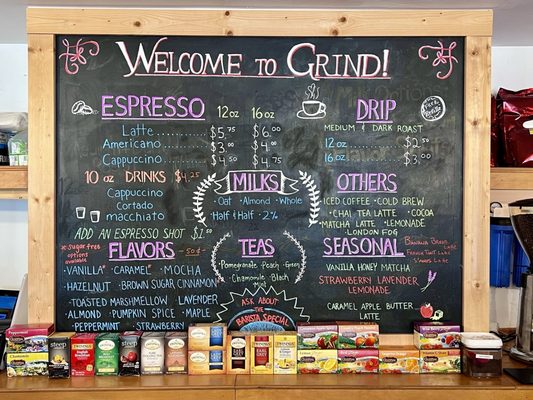 WELCOME TO GRIND!
ESPRESSO 12oz 16oz
Latte $5.75 $6.00
Americano $3.00 $4.00
Cappuccino $4.50 $4.75
10 oz DRINKS $4.25
Cappuccino
Cortado
macchiato
ADD AN ESPRESSO SHOT $1.00
*Sugar free options available
FLAVORS .50¢
·VANILLA* ·CARAMEL* ·MOCHA
·HAZELNUT ·BROWN SUGAR CINNAMON
·TOASTED MARSHMALLOW ·LAVENDER
·ALMOND ·PUMPKIN SPICE ·MAPLE
·PEPPERMINT ·STRAWBERRY
MILKS
·Oat ·Almond ·Whole
·Half & Half ·2%
TEAS
·Pomegranate ·Peach ·Green
·Chamomile ·Black
·Mint
ASK ABOUT THE
BARISTA
SPECIAL
DRIP
MEDIUM & DARK ROAST
12oz $2.50
16oz $3.00
OTHERS
ICED COFFEE ·COLD BREW
·CHAI TEA LATTE ·COCOA
·MATCHA LATTE ·LEMONADE
·LONDON FOG
SEASONAL
VANILLA HONEY MATCHA
STRAWBERRY LAVENDER
LEMONADE
CARAMEL APPLE BUTTER
LATTE